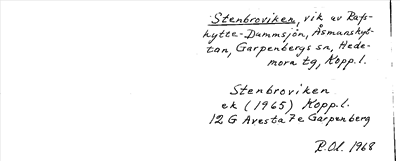 Stenbroviken, vik av Rafs-
hytte-Dammsjön, Åsmanshyt-
tan, Garpenbergs sn, Hede-
mora tg, Kopp.l.
Stenbroviken
ek (1965) Kopp.l.
12 G Avesta 7 e Garpenberg
R.Ol. 1968